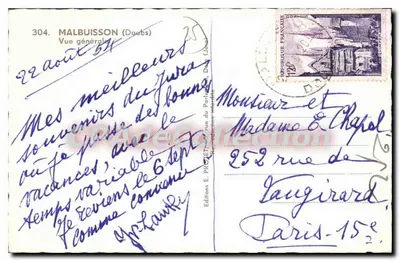 304. MALBUISSON (Doubs)
Vue générale
22 août 54
Mes meilleurs
souvenirs du Jura
où je passe des bonnes
vacances, avec le
temps variable
Je reviens le 6 sept
comme convenu
Monsieur et
Madame E Chapel
252 rue de
Vaugirard
Paris-15e